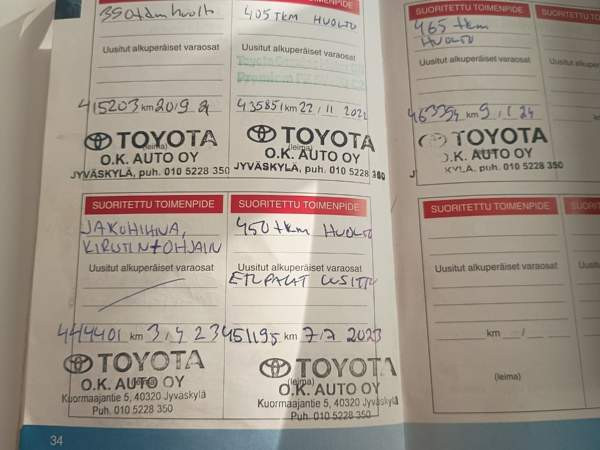 SUORITETTU TOIMENPIDE
405 TKM HUOLTO
Uusitut alkuperäiset varaosat
Uusitut alkuperäiset varaosat
415203 km 20/9 21
435851 km 22/11 2022
TOYOTA
O.K. AUTO OY
JYVÄSKYLÄ, puh. 010 5228 350
TOYOTA
(leima)
O.K. AUTO OY
JYVÄSKYLÄ, puh. 010 5228 350
SUORITETTU TOIMENPIDE
JAKOHIHNA,
KIRISTIN + OHJAIN
Uusitut alkuperäiset varaosat
444401 km 3/4 23
TOYOTA
O.K. AUTO OY
Kuormaajantie 5, 40320 Jyväskylä
Puh. 010 5228 350
SUORITETTU TOIMENPIDE
450 tkm HUOLTO
Uusitut alkuperäiset varaosat
ETUPALAT UUSITTU
451195 km 7/7 2023
TOYOTA
(leima)
O.K. AUTO OY
Kuormaajantie 5, 40320 Jyväskylä
Puh. 010 5228 350
34
SUORITETTU TOIMENPIDE
465 tkm
HUOLTO
Uusitut alkuperäiset varaosat
463394 km 9/1 24
TOYOTA
O.K. AUTO OY
puh. 010 5228 350
SUORITETTU TOIMENPIDE
Uusitut alkuperäiset varaosat
km / /
(leima)